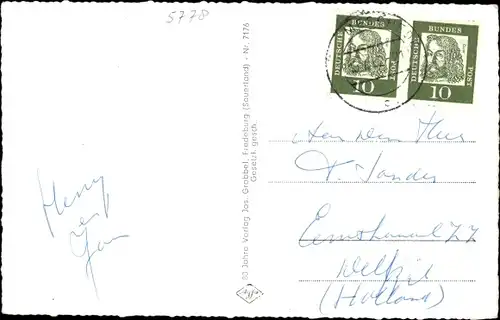 5778
DEUTSCHE BUNDES POST
Dürer
10
DEUTSCHE BUNDES POST
Dürer
10
80 Jahre Verlag Jos. Grobbel, Fredeburg (Sauerland) - Nr. 7176
Gesetzl. gesch.
Henny
en
Ger
Aan den Heer
Eemskanaal ZZ
Delfzijl
(Holland)